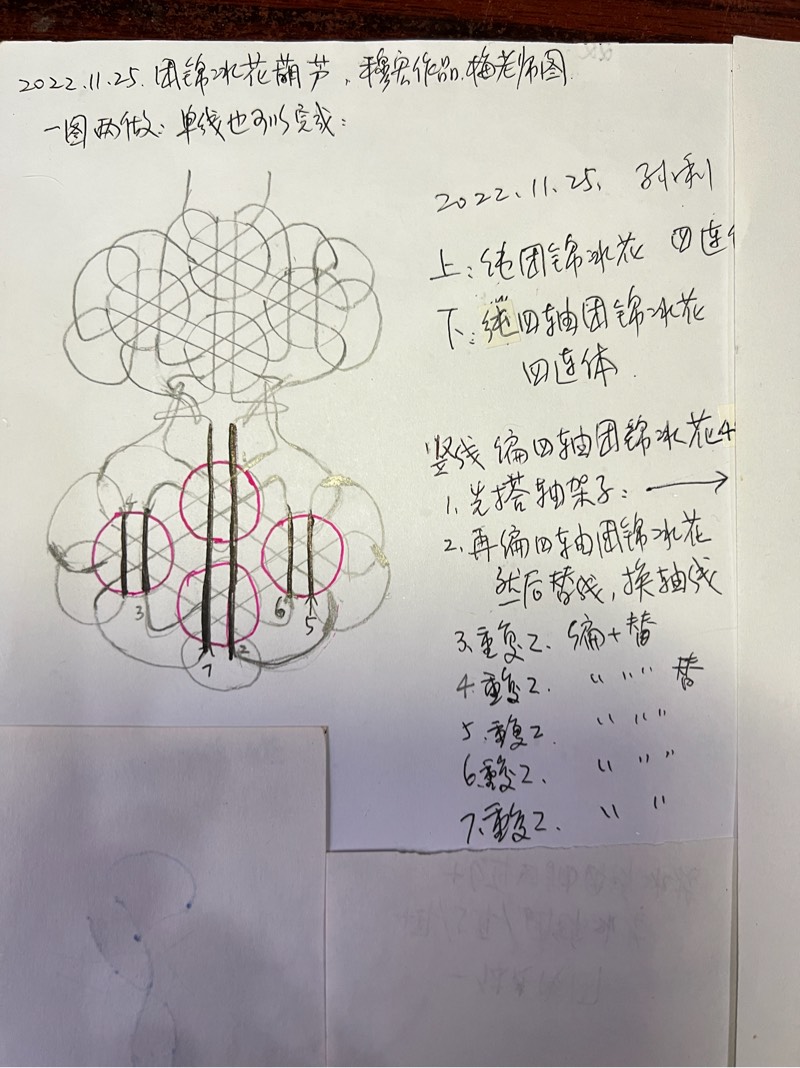 2022.11.25. 团锦冰花葫芦, 穆宏作品, 梅老师图.
一图两做: 单线也可以完成:
2022.11.25. 孙利
上: 纯团锦冰花 四连
下: 纯四轴团锦冰花
四连体.
竖线编四轴团锦冰花4
1. 先搭轴架子: →
2. 再编四轴团锦冰花
然后替线, 换轴线
3. 重复2. 编+替
4. 重复2. 〃 〃 替
5. 重复2. 〃 〃
6. 重复2. 〃 〃
7. 重复2. 〃 〃
3
6
5
7
2